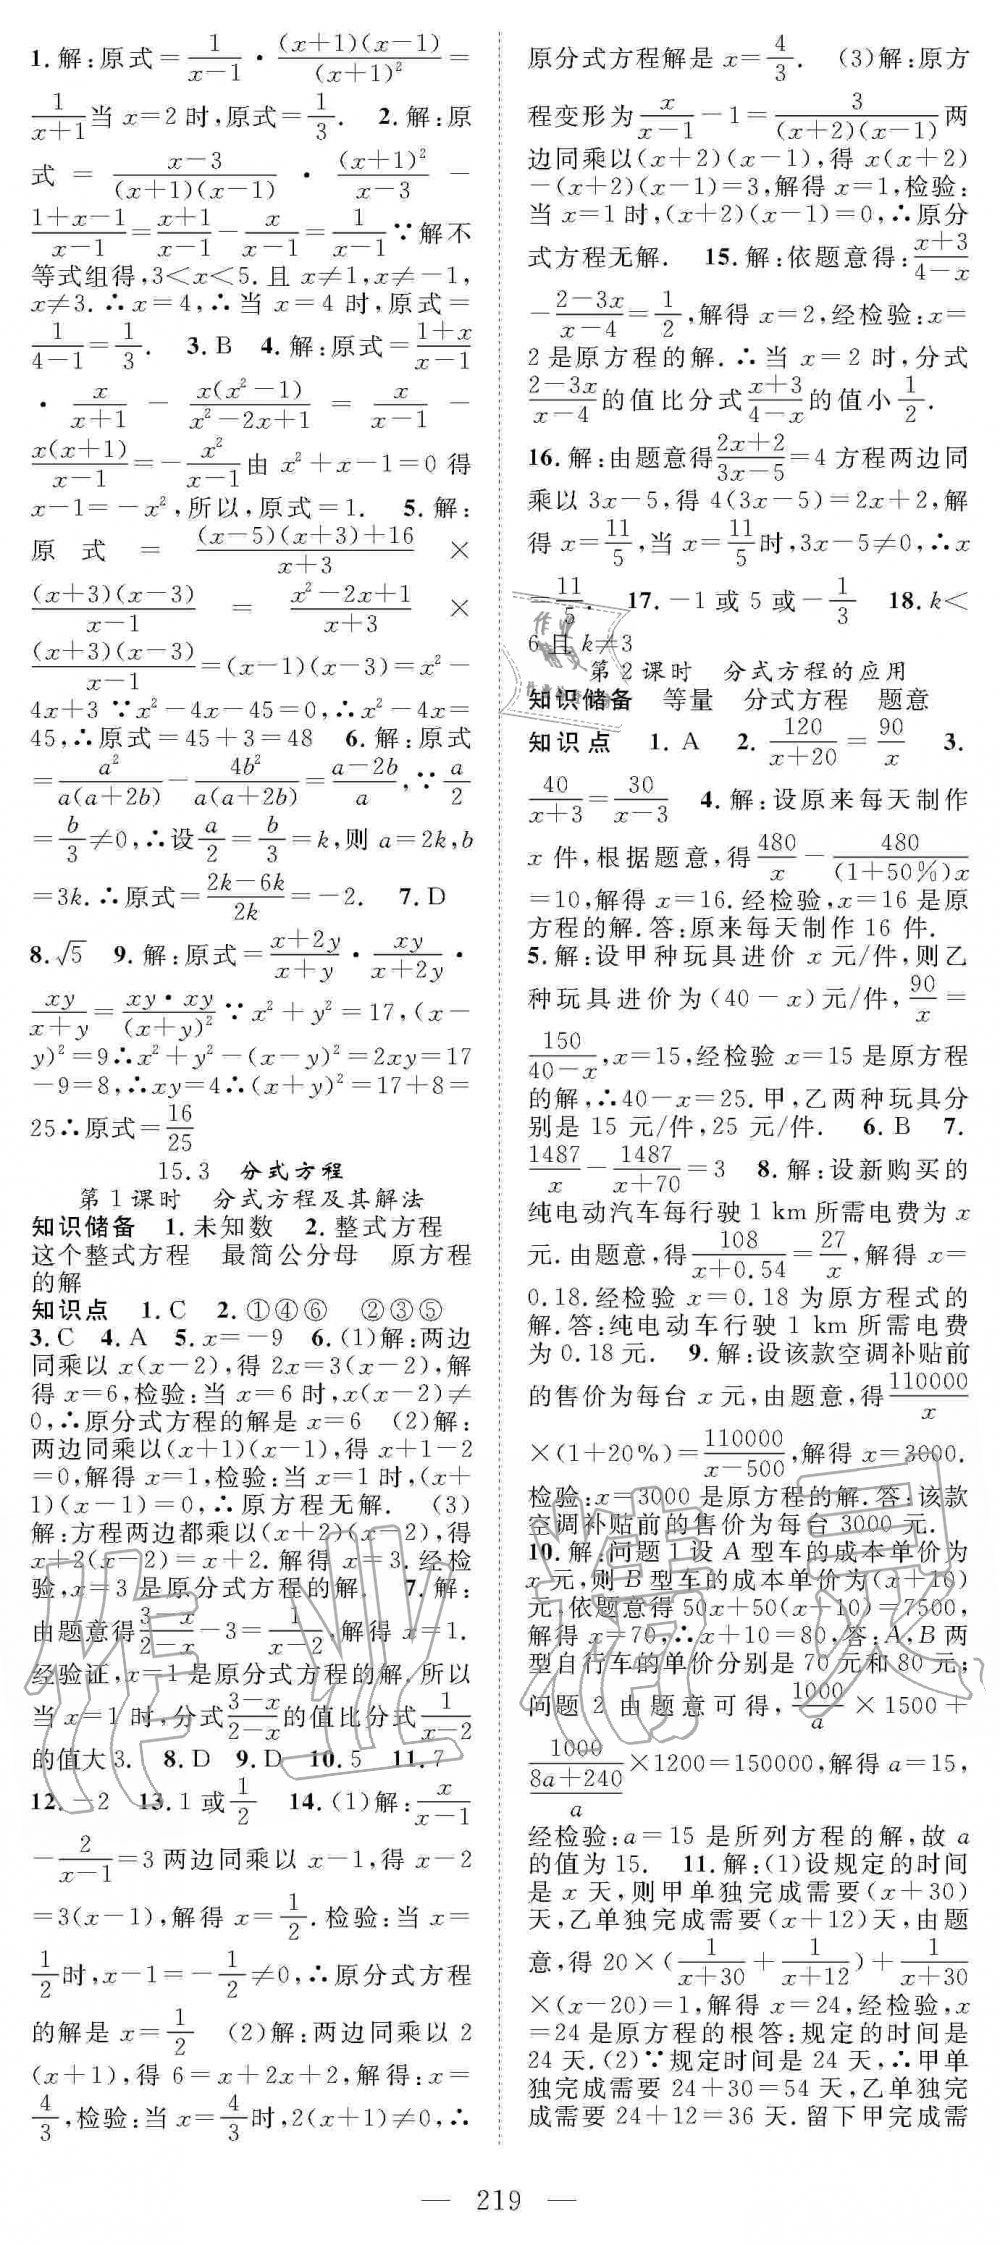 1.解:原式=1/(x-1)·(x+1)(x-1)/(x+1)²=
1/(x+1)当 x=2 时,原式=1/3. 2.解:原
式=(x-3)/((x+1)(x-1))·(x+1)²/(x-3)-
(1+x-1)/(x-1)=(x+1)/(x-1)-x/(x-1)=1/(x-1)∵解不
等式组得,3<x<5.且 x≠1,x≠-1,
x≠3.∴x=4,∴当 x=4 时,原式=
1/(4-1)=1/3. 3.B 4.解:原式=(1+x)/(x-1)
·x/(x+1)-x(x²-1)/(x²-2x+1)=x/(x-1)-
x(x+1)/(x-1)=-x²/(x-1)由 x²+x-1=0 得
x-1=-x²,所以,原式=1. 5.解:
原式=((x-5)(x+3)+16)/(x+3)×
(x+3)(x-3)/(x-1)=(x²-2x+1)/(x+3)×
(x+3)(x-3)/(x-1)=(x-1)(x-3)=x²-
4x+3 ∵x²-4x-45=0,∴x²-4x=
45,∴原式=45+3=48 6.解:原式
=a²/(a(a+2b))-4b²/(a(a+2b))=(a-2b)/a,∵a/2
=b/3≠0,∴设a/2=b/3=k,则 a=2k,b
=3k.∴原式=(2k-6k)/2k=-2. 7.D
8.√5 9.解:原式=(x+2y)/(x+y)·xy/(x+2y)·
xy/(x+y)=xy·xy/(x+y)²∵x²+y²=17,(x-
y)²=9∴x²+y²-(x-y)²=2xy=17
-9=8,∴xy=4∴(x+y)²=17+8=
25∴原式=16/25
15.3 分式方程
第1课时 分式方程及其解法
知识储备 1.未知数 2.整式方程
这个整式方程 最简公分母 原方程
的解
知识点 1.C 2.①④⑥ ②③⑤
3.C 4.A 5.x=-9 6.(1)解:两边
同乘以 x(x-2),得 2x=3(x-2),解
得 x=6,检验:当 x=6 时,x(x-2)≠
0,∴原分式方程的解是 x=6 (2)解:
两边同乘以(x+1)(x-1),得 x+1-2
=0,解得 x=1,检验:当 x=1 时,(x+
1)(x-1)=0,∴原方程无解. (3)
解:方程两边都乘以(x+2)(x-2),得
x+2(x-2)=x+2.解得 x=3.经检
验,x=3 是原分式方程的解. 7.解:
由题意得(3-x)/(2-x)-3=1/(x-2),解得 x=1.
经验证,x=1 是原分式方程的解.所以
当 x=1 时,分式(3-x)/(2-x)的值比分式1/(x-2)
的值大3. 8.D 9.D 10.5 11.7
12.-2 13.1 或1/2 14.(1)解:x/(x-1)
-2/(x-1)=3 两边同乘以 x-1,得 x-2
=3(x-1),解得 x=1/2.检验:当 x=
1/2时,x-1=-1/2≠0,∴原分式方程
的解是 x=1/2 (2)解:两边同乘以 2
(x+1),得 6=x+2x+2,解得:x=
4/3,检验:当 x=4/3时,2(x+1)≠0,∴
原分式方程解是 x=4/3. (3)解:原方
程变形为x/(x-1)-1=3/((x+2)(x-1))两
边同乘以(x+2)(x-1),得 x(x+2)
-(x+2)(x-1)=3,解得 x=1,检验:
当 x=1 时,(x+2)(x-1)=0,∴原分
式方程无解. 15.解:依题意得:(x+3)/(4-x)
-(2-3x)/(x-4)=1/2,解得 x=2,经检验:x=
2 是原方程的解.∴当 x=2 时,分式
(2-3x)/(x-4)的值比分式(x+3)/(4-x)的值小1/2.
16.解:由题意得(2x+2)/(3x-5)=4 方程两边同
乘以 3x-5,得 4(3x-5)=2x+2,解
得 x=11/5,当 x=11/5时,3x-5≠0,∴x
=11/5. 17.-1 或 5 或-1/3 18.k<
6 且 k≠3
第2课时 分式方程的应用
知识储备 等量 分式方程 题意
知识点 1.A 2.120/(x+20)=90/x 3.
40/(x+3)=30/(x-3) 4.解:设原来每天制作
x 件,根据题意,得480/x-480/((1+50%)x)
=10,解得 x=16.经检验,x=16 是原
方程的解.答:原来每天制作 16 件.
5.解:设甲种玩具进价 x 元/件,则乙
种玩具进价为(40-x)元/件,90/x=
150/(40-x),x=15,经检验 x=15 是原方程
的解,∴40-x=25.甲,乙两种玩具分
别是 15 元/件,25 元/件. 6.B 7.
1487/x-1487/(x+70)=3 8.解:设新购买的
纯电动汽车每行驶 1 km 所需电费为 x
元.由题意,得108/(x+0.54)=27/x,解得 x=
0.18.经检验 x=0.18 为原方程式的
解.答:纯电动车行驶 1 km 所需电费
为 0.18 元. 9.解:设该款空调补贴前
的售价为每台 x 元,由题意,得110000/x
×(1+20%)=110000/(x-500),解得 x=3000.
检验:x=3000 是原方程的解.答:该款
空调补贴前的售价为每台 3000 元.
10.解:问题1设 A 型车的成本单价为
x 元,则 B 型车的成本单价为(x+10)
元,依题意得 50x+50(x+10)=7500,
解得 x=70,∴x+10=80,答:A,B 两
型自行车的单价分别是 70 元和 80 元;
问题 2 由题意可得,1000/a×1500+
1000/((8a+240)/a)×1200=150000,解得 a=15,
经检验:a=15 是所列方程的解,故 a
的值为 15. 11.解:(1)设规定的时间
是 x 天,则甲单独完成需要(x+30)
天,乙单独完成需要(x+12)天,由题
意,得 20×(1/(x+30)+1/(x+12))+1/(x+30)
×(x-20)=1,解得 x=24,经检验,x
=24 是原方程的根答:规定的时间是
24 天.(2)∵规定时间是 24 天,∴甲单
独完成需要 24+30=54 天,乙单独完
成需要 24+12=36 天.留下甲完成需
— 219 —
作业精灵